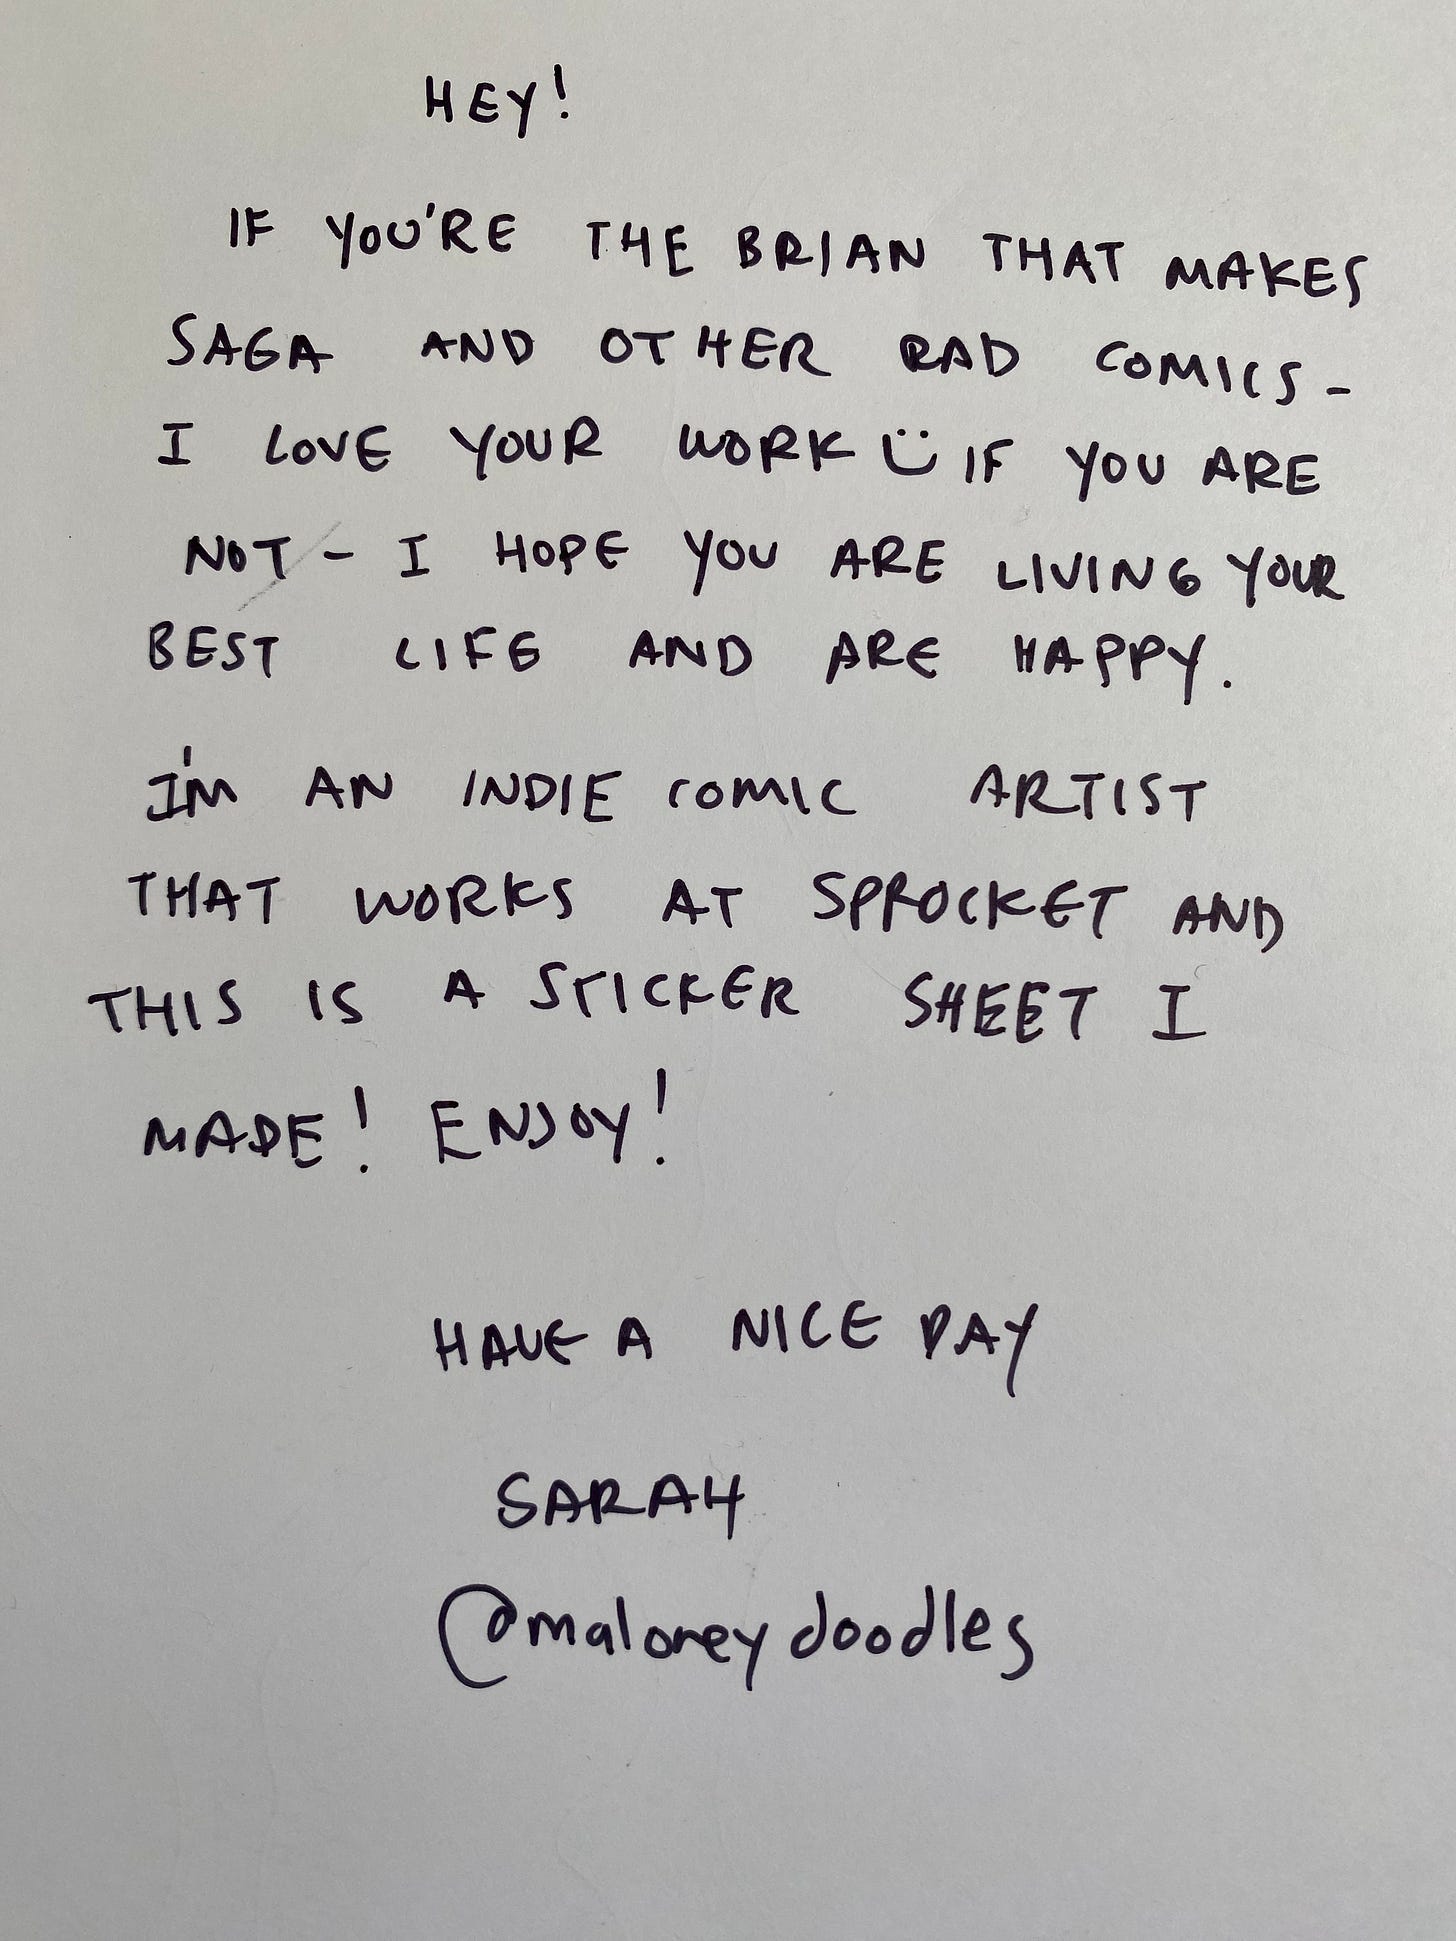 HEY!
IF YOU'RE THE BRIAN THAT MAKES
SAGA AND OTHER RAD COMICS -
I LOVE YOUR WORK Ü IF YOU ARE
NOT - I HOPE YOU ARE LIVING YOUR
BEST LIFE AND ARE HAPPY.
I'M AN INDIE COMIC ARTIST
THAT WORKS AT SPROCKET AND
THIS IS A STICKER SHEET I
MADE! ENJOY!
HAVE A NICE DAY
SARAH
@maloneydoodles